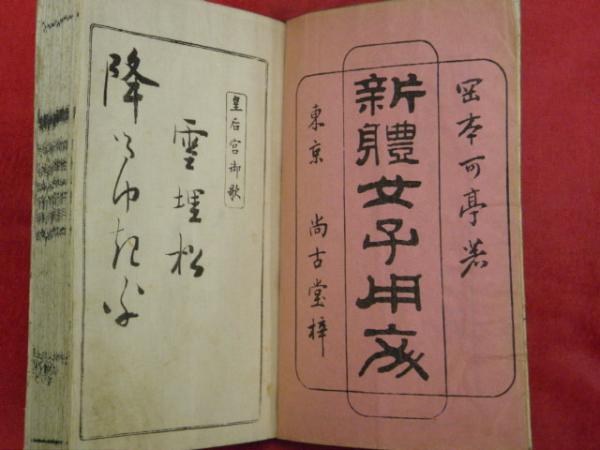 岡本可亭著
新體女子用文
東京 尚古堂梓
皇后宮御歌
雪埋松
降